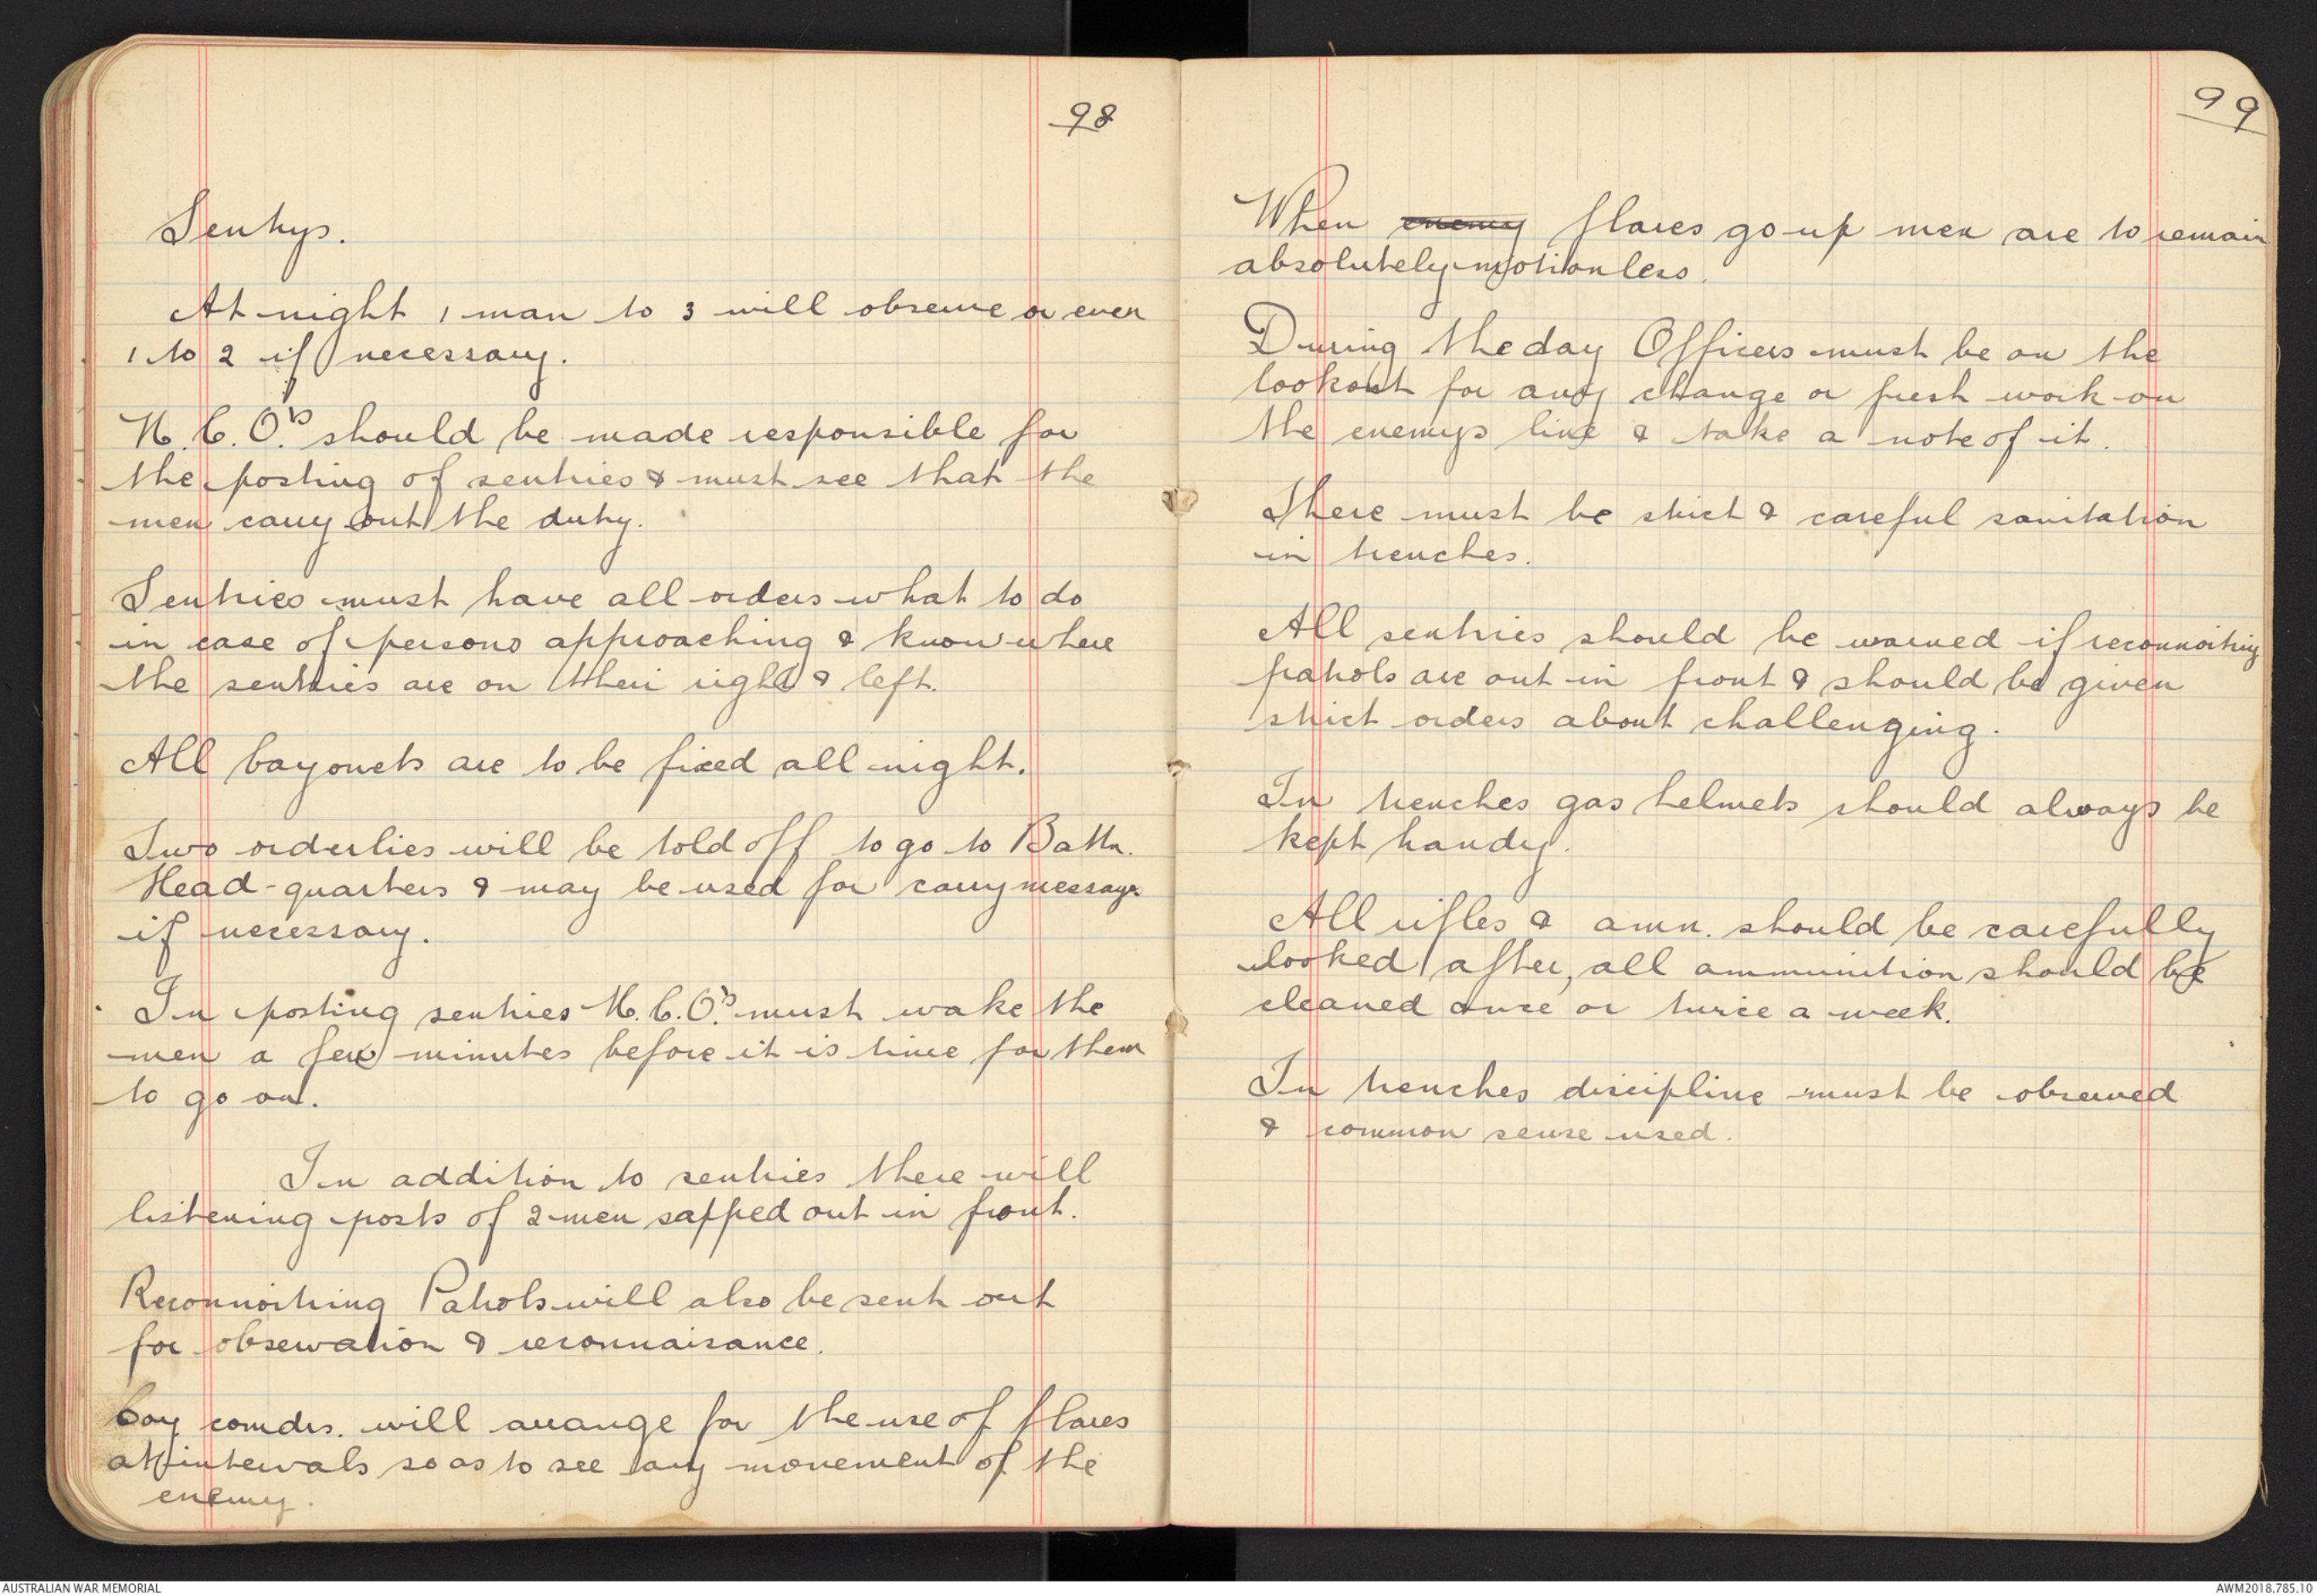 98
Sentrys.
At night 1 man to 3 will observe or even
1 to 2 if necessary.
N.C.O.'s should be made responsible for
the posting of sentries & must see that the
men carry out the duty.
Sentries must have all orders what to do
in case of persons approaching & know where
the sentries are on their right & left.
All bayonets are to be fixed all night.
Two orderlies will be told off to go to Battn.
Head-quarters & may be used for carry message
if necessary.
In posting sentries N.C.O.'s must wake the
men a few minutes before it is time for them
to go on.
In addition to sentries there will
listening posts of 2 men sapped out in front.
Reconnoitring Patrols will also be sent out
for observation & reconnaisance.
Coy comdrs. will arrange for the use of flares
at intervals so as to see any movement of the
enemy.
99
When enemy flares go up men are to remain
absolutely motionless.
During the day Officers must be on the
lookout for any change or fresh work on
the enemys line & take a note of it.
There must be strict & careful sanitation
in trenches.
All sentries should be warned if reconnoitring
patrols are out in front & should be given
strict orders about challenging.
In trenches gas helmets should always be
kept handy.
All rifles & amn. should be carefully
looked after, all ammunition should be
cleaned once or twice a week.
In trenches discipline must be observed
& common sense used.
AUSTRALIAN WAR MEMORIAL
AWM2018.785.10